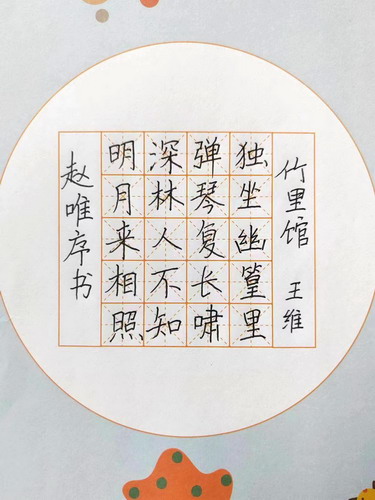 竹里馆 王维
独坐幽篁里
弹琴复长啸
深林人不知
明月来相照
赵唯序书